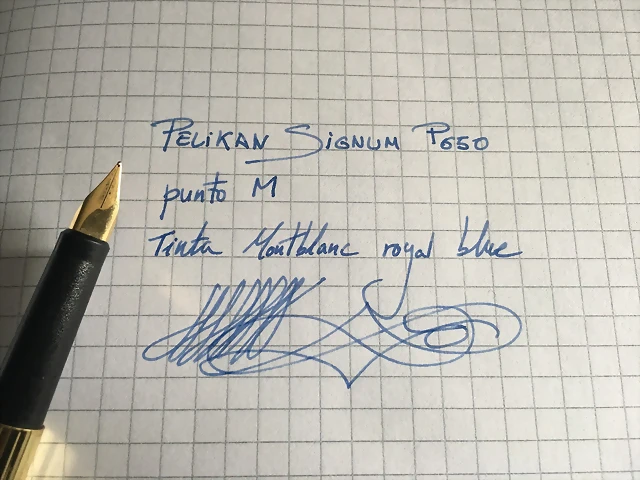 PELiKAN SiGNUM P650
punto M
Tinta Montblanc royal blue